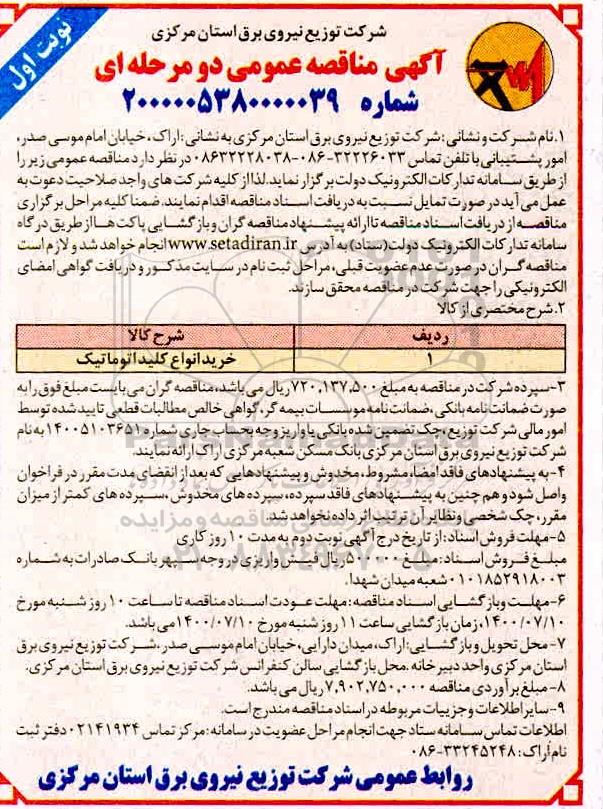 شرکت توزیع نیروی برق استان مرکزی
نوبت اول
آگهی مناقصه عمومی دو مرحله ای
شماره ۲۰۰۰۰۰۵۳۸۰۰۰۰۰۳۹
۱.نام شرکت و نشانی: شرکت توزیع نیروی برق استان مرکزی به نشانی: اراک، خیابان امام موسی صدر،
امور پشتیبانی با تلفن تماس ۳۲۲۲۶۰۳۳-۰۸۶-۰۸۶۳۲۲۲۸۰۳۸ در نظر دارد مناقصه عمومی زیر را
از طریق سامانه تدارکات الکترونیک دولت برگزار نماید. لذا از کلیه شرکت های واجد صلاحیت دعوت به
عمل می آید در صورت تمایل نسبت به دریافت اسناد مناقصه اقدام نمایند. ضمنا کلیه مراحل برگزاری
مناقصه از دریافت اسناد مناقصه تا ارائه پیشنهاد مناقصه گران و بازگشایی پاکت ها از طریق درگاه
سامانه تدارکات الکترونیک دولت (ستاد) به آدرس www.setadiran.ir انجام خواهد شد و لازم است
مناقصه گران در صورت عدم عضویت قبلی، مراحل ثبت نام در سایت مذکور و دریافت گواهی امضای
الکترونیکی را جهت شرکت در مناقصه محقق سازند.
۲.شرح مختصری از کالا
ردیف شرح کالا
۱ خرید انواع کلید اتوماتیک
۳-سپرده شرکت در مناقصه به مبلغ ۷۲۰,۱۳۷,۵۰۰ ریال می باشد، مناقصه گران می بایست مبلغ فوق را به
صورت ضمانت نامه بانکی، ضمانت نامه موسسات بیمه گر، گواهی خالص مطالبات قطعی تایید شده توسط
امور مالی شرکت توزیع، چک تضمین شده بانکی یا واریز وجه بحساب جاری شماره ۱۴۰۰۵۱۰۳۶۵۱ به نام
شرکت توزیع نیروی برق استان مرکزی بانک مسکن شعبه مرکزی اراک ارائه نمایند.
۴- به پیشنهادهای فاقد امضا، مشروط، مخدوش و پیشنهادهایی که بعد از انقضای مدت مقرر در فراخوان
واصل شود و هم چنین به پیشنهادهای فاقد سپرده، سپرده های مخدوش، سپرده های کمتر از میزان
مقرر، چک شخصی و نظایر آن ترتیب اثر داده نخواهد شد.
۵-مهلت فروش اسناد: از تاریخ درج آگهی نوبت دوم به مدت ۱۰ روز کاری
مبلغ فروش اسناد: مبلغ ۵۰۰,۰۰۰ ریال فیش واریزی در وجه سپهر بانک صادرات به شماره
۰۱۰۱۸۵۲۹۱۸۰۰۳ شعبه میدان شهدا.
۶-مهلت و بازگشایی اسناد مناقصه: مهلت عودت اسناد مناقصه تا ساعت ۱۰ روز شنبه مورخ
۱۴۰۰/۰۷/۱۰، زمان بازگشایی ساعت ۱۱ روز شنبه مورخ ۱۴۰۰/۰۷/۱۰ می باشد.
۷- محل تحویل و بازگشایی: اراک، میدان دارایی، خیابان امام موسی صدر، شرکت توزیع نیروی برق
استان مرکزی واحد دبیرخانه. محل بازگشایی سالن کنفرانس شرکت توزیع نیروی برق استان مرکزی.
۸- مبلغ برآوردی مناقصه ۷,۹۰۲,۷۵۰,۰۰۰ ریال می باشد.
۹- سایر اطلاعات و جزییات مربوطه در اسناد مناقصه مندرج است.
اطلاعات تماس سامانه ستاد جهت انجام مراحل عضویت در سامانه: مرکز تماس ۰۲۱۴۱۹۳۴ دفتر ثبت
نام اراک: ۳۳۲۴۵۲۴۸-۰۸۶
روابط عمومی شرکت توزیع نیروی برق استان مرکزی